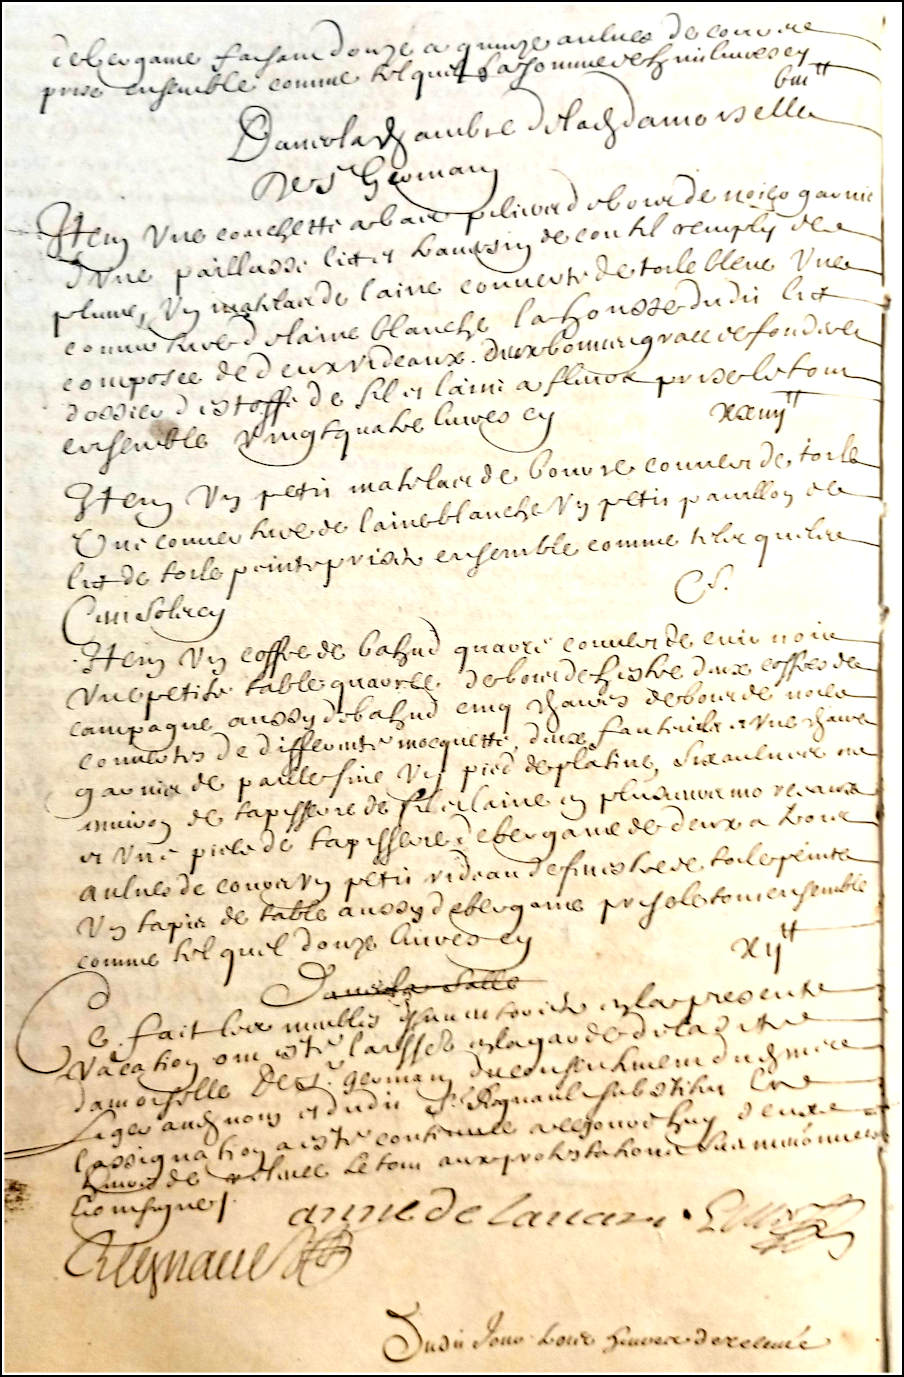 de bergame faisant douze a quinze aulnes de cours
prisé ensemble comme tel quel la somme de huit livres cy
viii tt
Dans la chambre de lad damoiselle
de St Germain
Item Une couchette a bas pilliers de bois de noier garnie
d'Une paillasse lict et traversin de coutil remply de
plume, Un mathelas de laine couvert de toile bleue Une
couverture de laine blanche la housse dudit lict
composée de deux rideaux deux bonnes graces fond et
dossier d'estoffe de fil et laine a fleurs prisé le tout
ensemble vingt quatre livres cy xxiiii tt
Item Un petit mathelas de bourre couvert de toile
Une couverture de laine blanche Un petit pavillon de
lict de toile peinte prisés ensemble comme tels quels
Cent sols cy C s.
Item Un coffre de bahud quarré couvert de cuir noir
Une petite table quarrée de bois de hestre deux coffres de
campagne aussy de bahud cinq chaires de bois de noier
couvertes de differente mocquette, deux fauteuils et Une chaire
garnie de paille fine Un pied de platine, six aulnes ou
environ de tapisserie de fil et laine en plusieurs morceaux
et Une piece de tapisserie de bergame de deux a trois
aulnes de cours Un petit rideau de fenestre de toile peinte
Un tapis de table aussy de bergame prisé le tout ensemble
comme tel quel douze livres cy xii tt
Dans la salle
Ce fait les meubles inventoriés en la presente
Vacation ont esté laissés en la garde de ladite
damoiselle de St Germain du consentement dud mre
Leger aud nom et dudit Sr Regnault substitut Et
l'assignation a esté continuée a cejourd'huy deux
heures de relevée le tout aux protestations susmentionnées
Et ont signé
anne de
Regnault
Dudit Jour trois heures de relevée